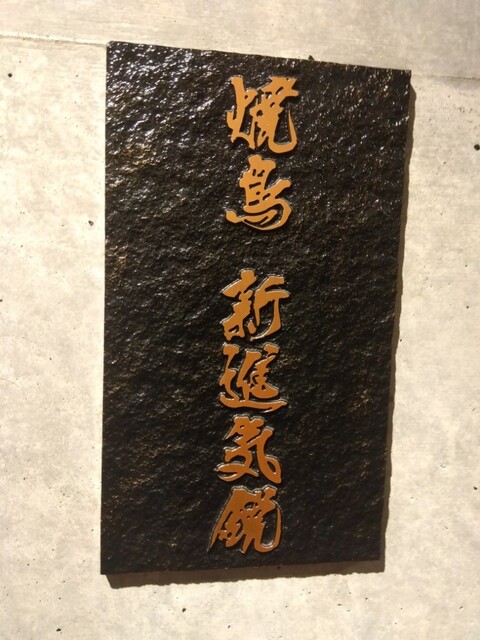 焼鳥 新進気鋭